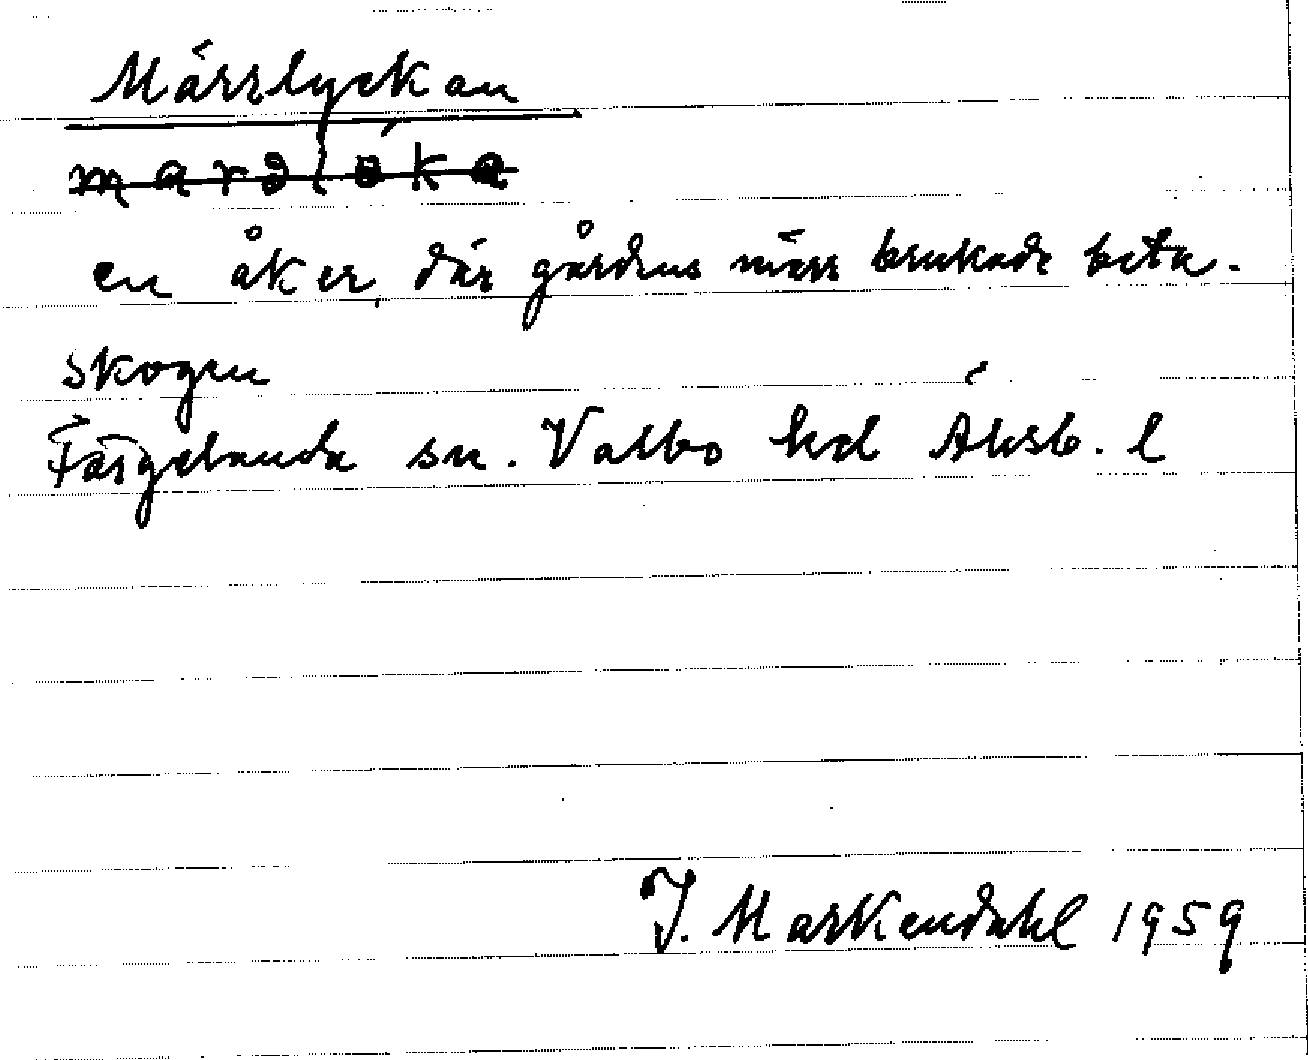 Märrlyckan
en åker, där gårdens märr brukade beta.
skogen
Färgelanda sn. Valbo hd Älvsb. l
J. Markendahl 1959